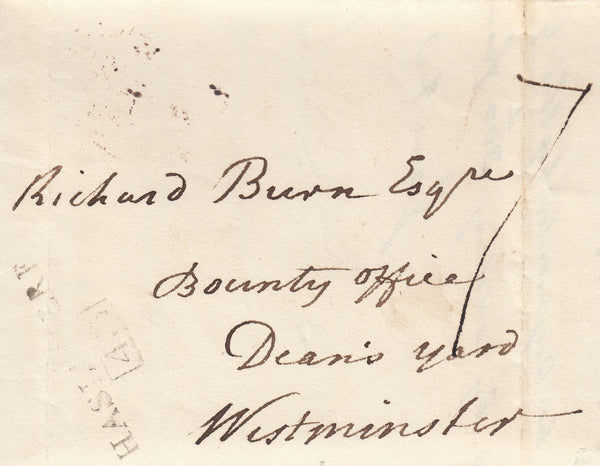 7
Richard Burn Esqre
Bounty office
Dean's yard
Westminster
HAST